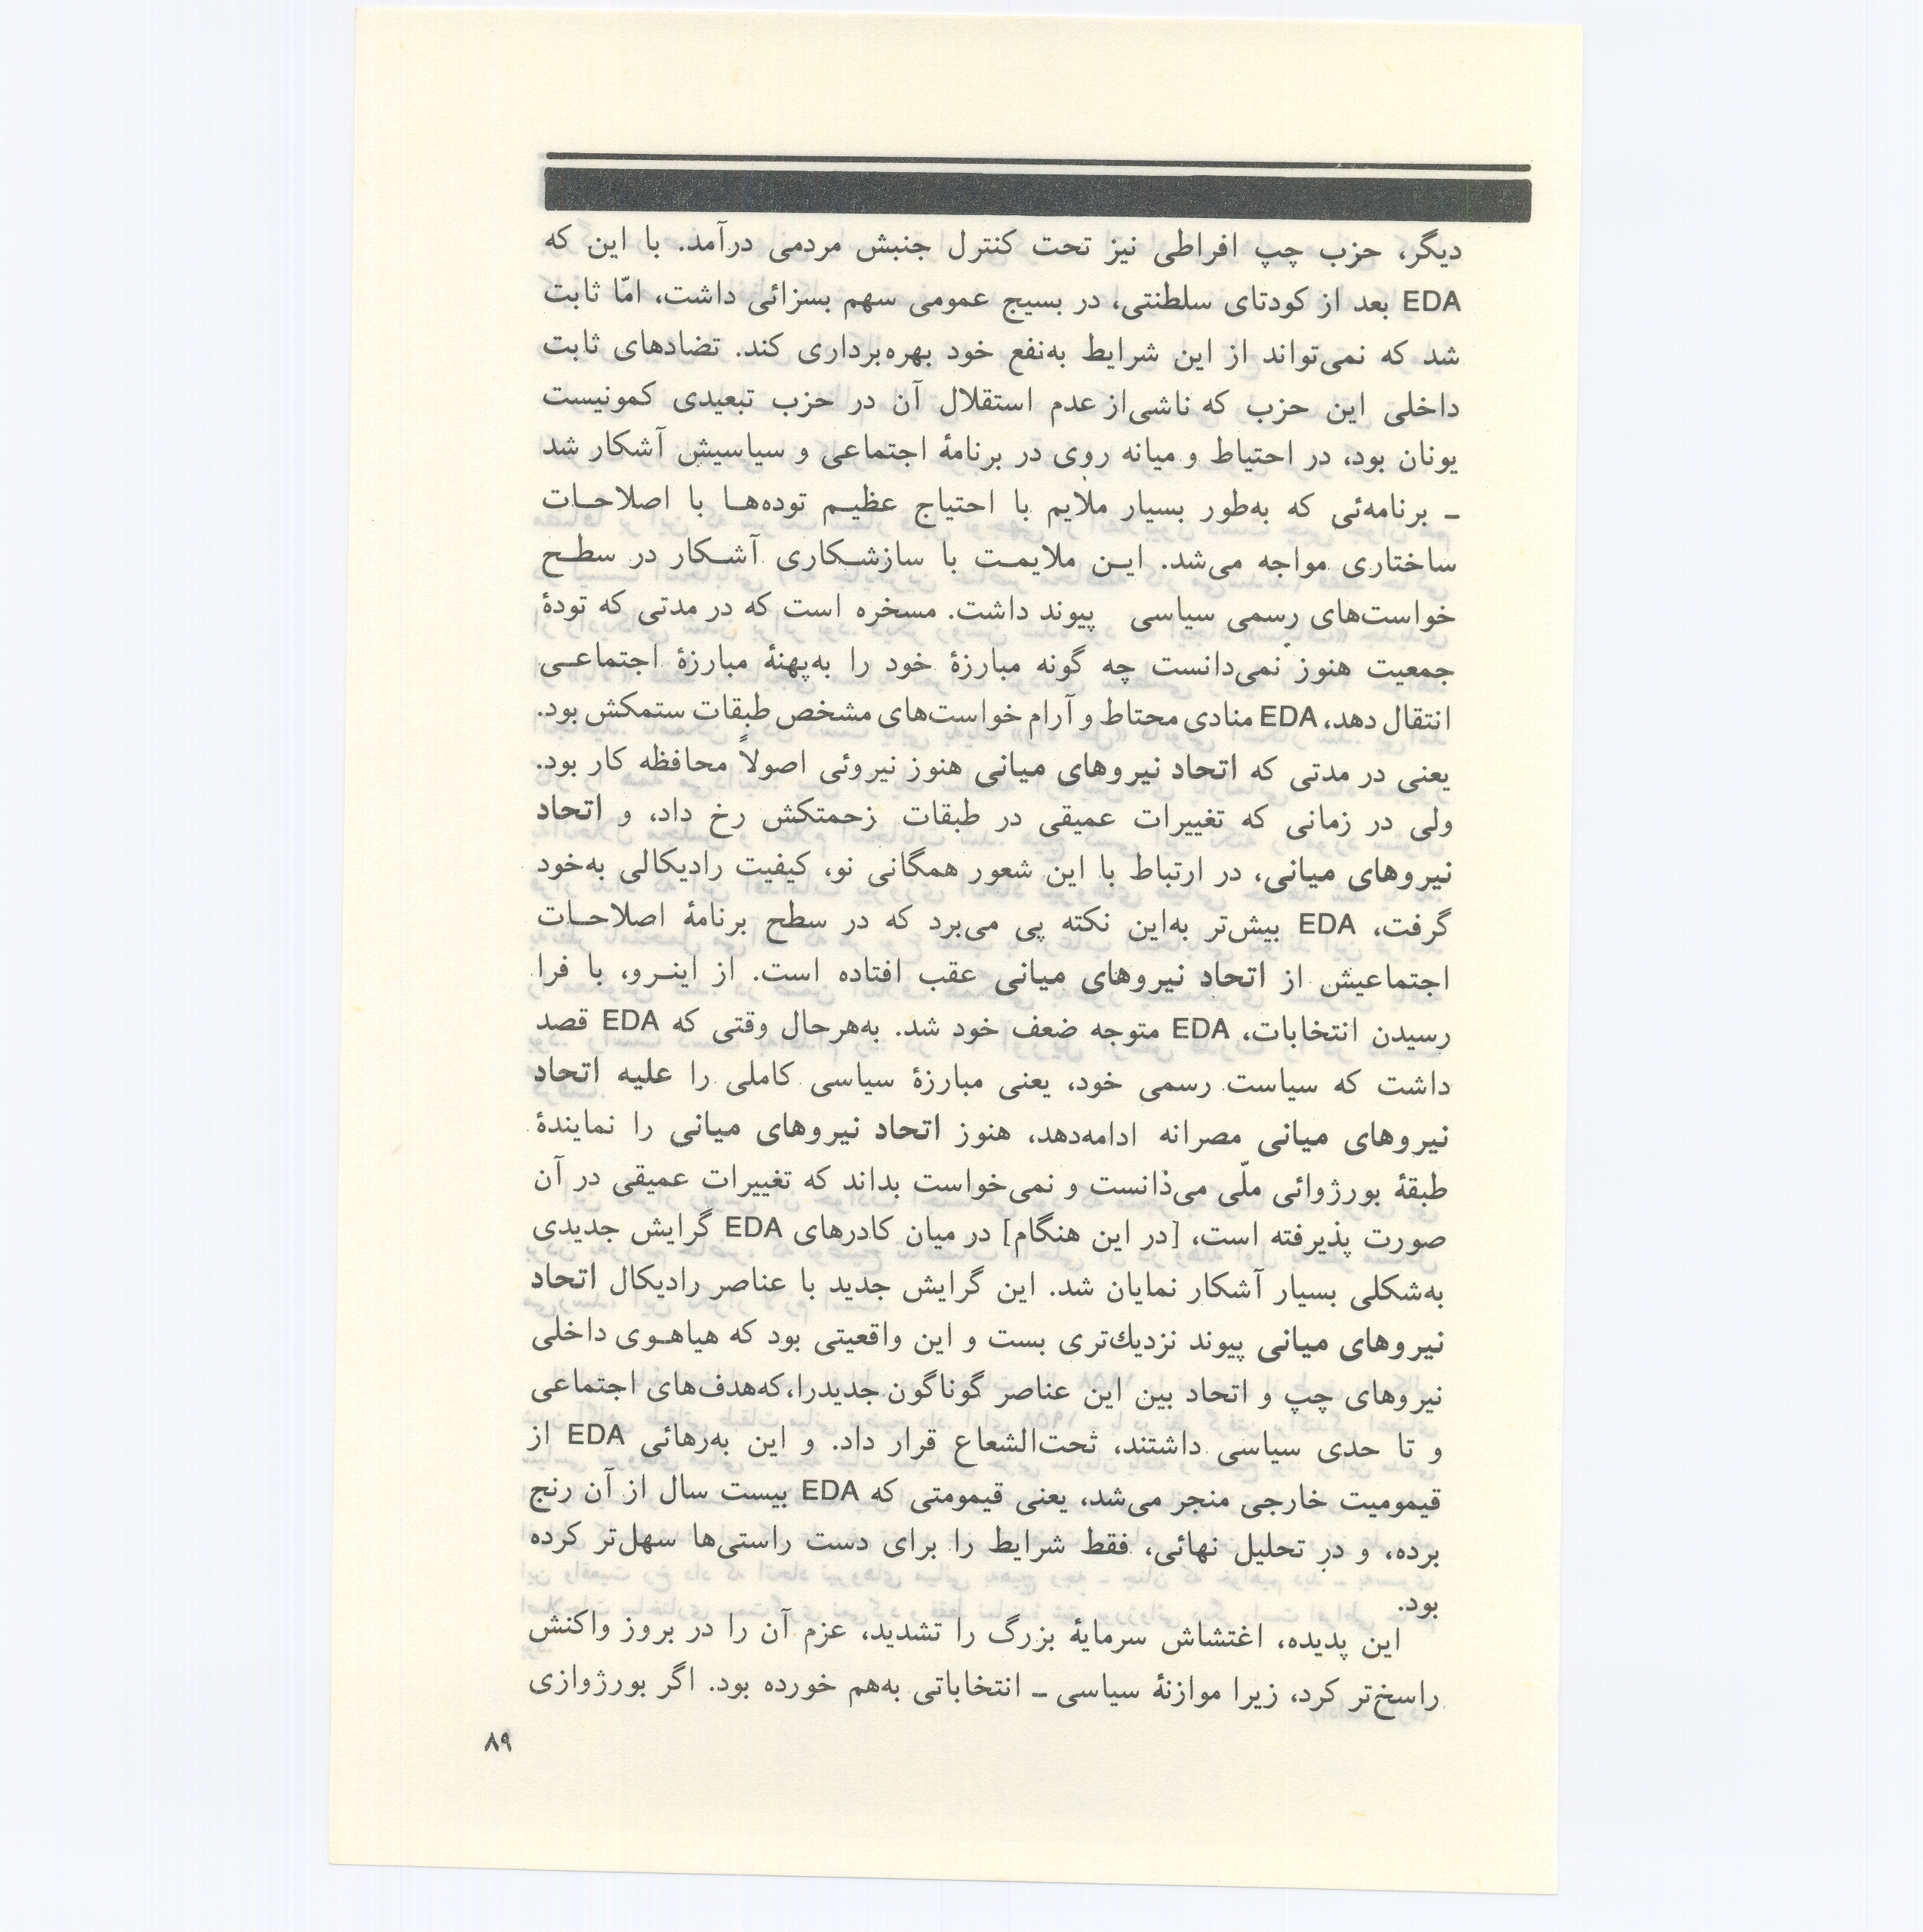 دیگر، حزب چپ افراطی نیز تحت کنترل جنبش مردمی درآمد. با این که
EDA بعد از کودتای سلطنتی، در بسیج عمومی سهم بسزائی داشت، امّا ثابت
شد که نمی‌تواند از این شرایط به‌نفع خود بهره‌برداری کند. تضادهای ثابت
داخلی این حزب که ناشی‌از عدم استقلال آن در حزب تبعیدی کمونیست
یونان بود، در احتیاط و میانه روی در برنامهٔ اجتماعی و سیاسیش آشکار شد
ـ برنامه‌ئی که به‌طور بسیار ملایم با احتیاج عظیـم توده‌هـا با اصلاحـات
ساختاری مواجه می‌شد. ایـن ملایمـت با سازشـکاری آشـکار در سطـح
خواست‌های رسمی سیاسی پیوند داشت. مسخره است که در مدتی که تودهٔ
جمعیت هنوز نمی‌دانست چه گونه مبارزهٔ خود را به‌پهنهٔ مبارزهٔ اجتماعـی
انتقال دهد، EDA منادی محتاط و آرام خواست‌های مشخص طبقات ستمکش بود.
یعنی در مدتی که اتحاد نیروهای میانی هنوز نیروئی اصولاً محافظه کار بود.
ولی در زمانی که تغییرات عمیقی در طبقات زحمتکش رخ داد، و اتحاد
نیروهای میانی، در ارتباط با این شعور همگانی نو، کیفیت رادیکالی به‌خود
گرفت، EDA بیش‌تر به‌این نکته پی می‌برد که در سطح برنامهٔ اصلاحـات
اجتماعیش از اتحاد نیروهای میانی عقب افتاده است. از اینـرو، با فرا
رسیدن انتخابات، EDA متوجه ضعف خود شد. به‌هرحال وقتی که EDA قصد
داشت که سیاست رسمی خود، یعنی مبارزهٔ سیاسی کاملی را علیه اتحاد
نیروهای میانی مصرانه ادامه‌دهد، هنوز اتحاد نیروهای میانی را نمایندهٔ
طبقهٔ بورژوائی ملّی می‌دانست و نمی‌خواست بداند که تغییرات عمیقی در آن
صورت پذیرفته است، [در این هنگام] در میان کادرهای EDA گرایش جدیدی
به‌شکلی بسیار آشکار نمایان شد. این گرایش جدید با عناصر رادیکال اتحاد
نیروهای میانی پیوند نزدیك‌تری بست و این واقعیتی بود که هیاهـوی داخلی
نیروهای چپ و اتحاد بین این عناصر گوناگون جدیدرا،که‌هدف‌های اجتماعی
و تا حدی سیاسی داشتند، تحت‌الشعاع قرار داد. و این به‌رهائی EDA از
قیمومیت خارجی منجر می‌شد، یعنی قیمومتی که EDA بیست سال از آن رنج
برده، و در تحلیل نهائی، فقط شرایط را برای دست راستی‌ها سهل‌تر کرده
بود.
این پدیده، اغتشاش سرمایهٔ بزرگ را تشدید، عزم آن را در بروز واکنش
راسخ‌تر کرد، زیرا موازنهٔ سیاسی ـ انتخاباتی به‌هم خورده بود. اگر بورژوازی
۸۹